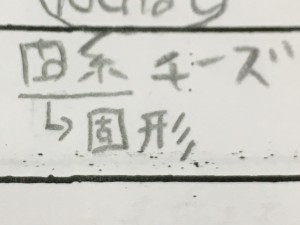 固系 チーズ
↳ 固形